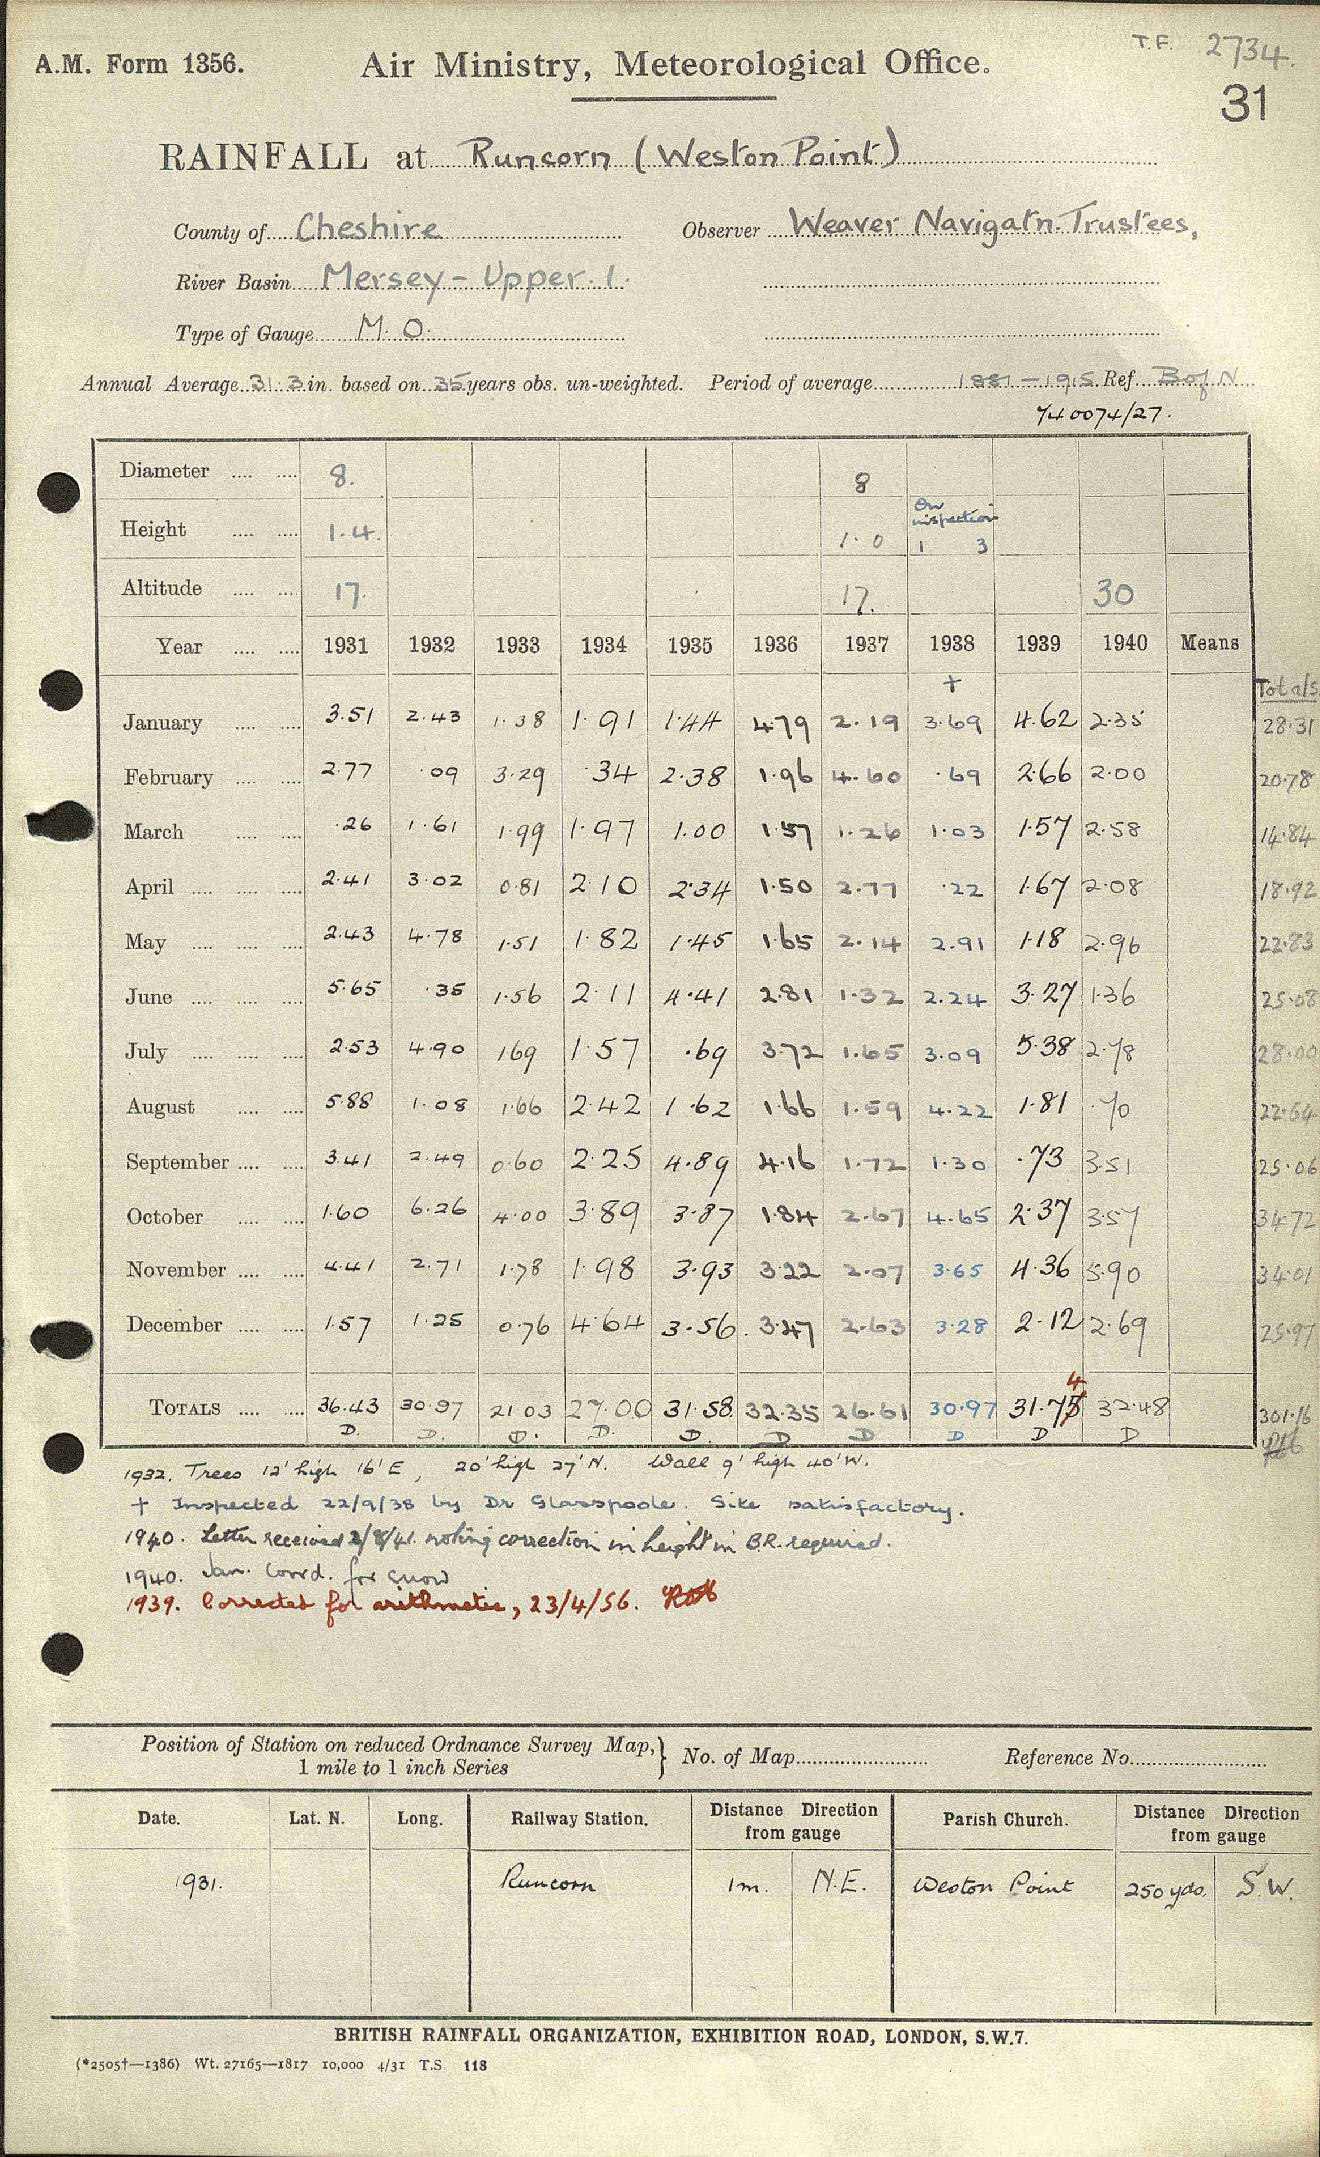 T.F. 2734.
A.M. Form 1356. Air Ministry, Meteorological Office.
31
RAINFALL at Runcorn (Weston Point)
County of Cheshire Observer Weaver Navigatn. Trustees,
River Basin Mersey - Upper. 1.
Type of Gauge M. O.
Annual Average 31.3 in. based on 35 years obs. un-weighted. Period of average 1881-1915. Ref. B of N
740074/27.
Diameter 8. 8
Height 1.4. 1.0 On inspection 1 3
Altitude 17. 17. 30
Year 1931 1932 1933 1934 1935 1936 1937 1938 1939 1940 Means
+ Totals
January 3.51 2.43 1.38 1.91 1.44 4.79 2.19 3.69 4.62 2.35 28.31
February 2.77 .09 3.29 .34 2.38 1.96 4.60 .69 2.66 2.00 20.78
March .26 1.61 1.99 1.97 1.00 1.57 1.26 1.03 1.57 2.58 14.84
April 2.41 3.02 0.81 2.10 2.34 1.50 2.77 .22 1.67 2.08 18.92
May 2.43 4.78 1.51 1.82 1.45 1.65 2.14 2.91 1.18 2.96 22.83
June 5.65 .35 1.56 2.11 4.41 2.81 1.32 2.24 3.27 1.36 25.08
July 2.53 4.90 1.69 1.57 .69 3.72 1.65 3.09 5.38 2.78 28.00
August 5.88 1.08 1.66 2.42 1.62 1.66 1.59 4.22 1.81 .70 22.64
September 3.41 2.49 0.60 2.25 4.89 4.16 1.72 1.30 .73 3.51 25.06
October 1.60 6.26 4.00 3.89 3.87 1.84 2.67 4.65 2.37 3.57 34.72
November 4.41 2.71 1.78 1.98 3.93 3.22 2.07 3.65 4.36 5.90 34.01
December 1.57 1.25 0.76 4.64 3.56 3.47 2.63 3.28 2.12 2.69 25.97
4
TOTALS 36.43 30.97 21.03 27.00 31.58 32.35 26.61 30.97 31.75 32.48 301.16
D. D. D. D. D. D D D D D
1932. Trees 12' high 16' E, 20' high 27' N. Wall 9' high 40' W.
+ Inspected 22/9/38 by Dr Glasspoole. Site satisfactory.
1940. Letter received 2/8/41. noting correction in height in B.R. required.
1940. Jan. Corrd. for snow
1939. Corrected for arithmetic, 23/4/56.
Position of Station on reduced Ordnance Survey Map, } No. of Map Reference No.
1 mile to 1 inch Series
Date. Lat. N. Long. Railway Station. Distance Direction from gauge Parish Church. Distance Direction from gauge
1931. Runcorn 1m. N.E. Weston Point 250 yds. S.W.
BRITISH RAINFALL ORGANIZATION, EXHIBITION ROAD, LONDON, S.W.7.
(*2505†—1386) Wt. 27165—1817 10,000 4/31 T.S 118